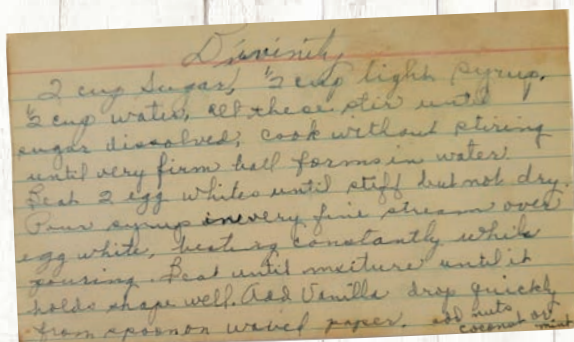 Divinity
2 cup sugar, ½ cup light syrup,
½ cup water, all these stir until
sugar dissolved, cook without stiring
until very firm ball forms in water.
Beat 2 egg whites until stiff but not dry.
Pour syrup in very fine stream over
egg white, beating constantly while
pouring. Beat until mixture until it
holds shape well. Add Vanilla drop quickly
from spoon on waxed paper. add nuts
coconut or mint